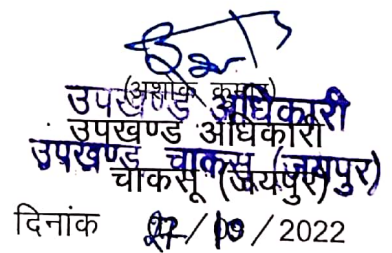 (अशोक कुमार)
उपखण्ड अधिकारी
उपखण्ड अधिकारी
उपखण्ड चाकसू (जयपुर)
चाकसू (जयपुर)
दिनांक / / 2022